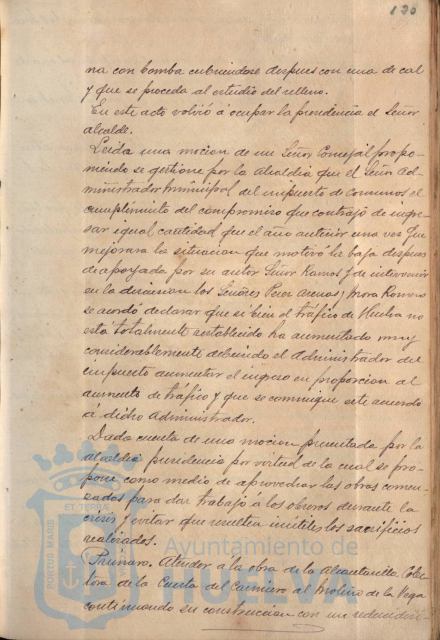 130
na con bomba cubriendose despues con una de cal
y que se proceda al estudio del relleno.
En este acto volvió á ocupar la presidencia el Señor
alcalde.
Leida una mocion de un Señor Concejal propo-
niendo se gestione por la Alcaldia que el Señor Ad-
ministrador municipal del impuesto de consumos el
cumplimiento del compromiso que contrajo de ingre-
sar igual cantidad que el año anterior una vez que
mejorara la situacion que motivó la baja despues
de apoyada por su autor Señor Ramos y de intervenir
en la discusion los Señores Perez Arenas y Mora Romero
se acordó declarar que si bien el tráfico de Huelva no
está totalmente restablecido ha aumentado muy
considerablemente debiendo el Administrador del
impuesto aumentar el ingreso en proporcion al
aumento de tráfico y que se comunique este acuerdo
a dicho Administrador.
Dada cuenta de una mocion presentada por la
alcaldia presidencia por virtud de la cual se pro-
pone como medio de aprovechar las obras comen-
zadas para dar trabajo á los obreros durante la
crisis y evitar que resulten inutiles los sacrificios
realizados.
Primero. Atender a la obra de la Alcantarilla Colec-
tora de la Cuesta del Carnicero al Molino de la Vega
continuando su construccion con un reducido
Ayuntamiento de
HUELVA
PORTUS MARIS
ET TERRAE